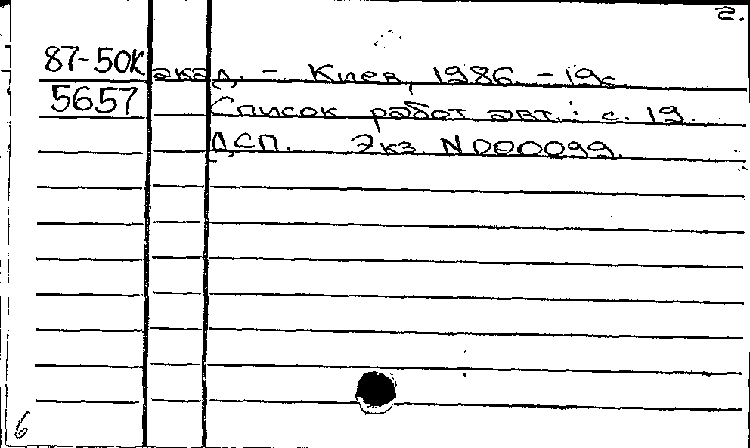 2.
87-50К акад. - Киев, 1986 - 19с
5657 Список работ авт.: с. 19.
ДСП. Экз N000099.
6